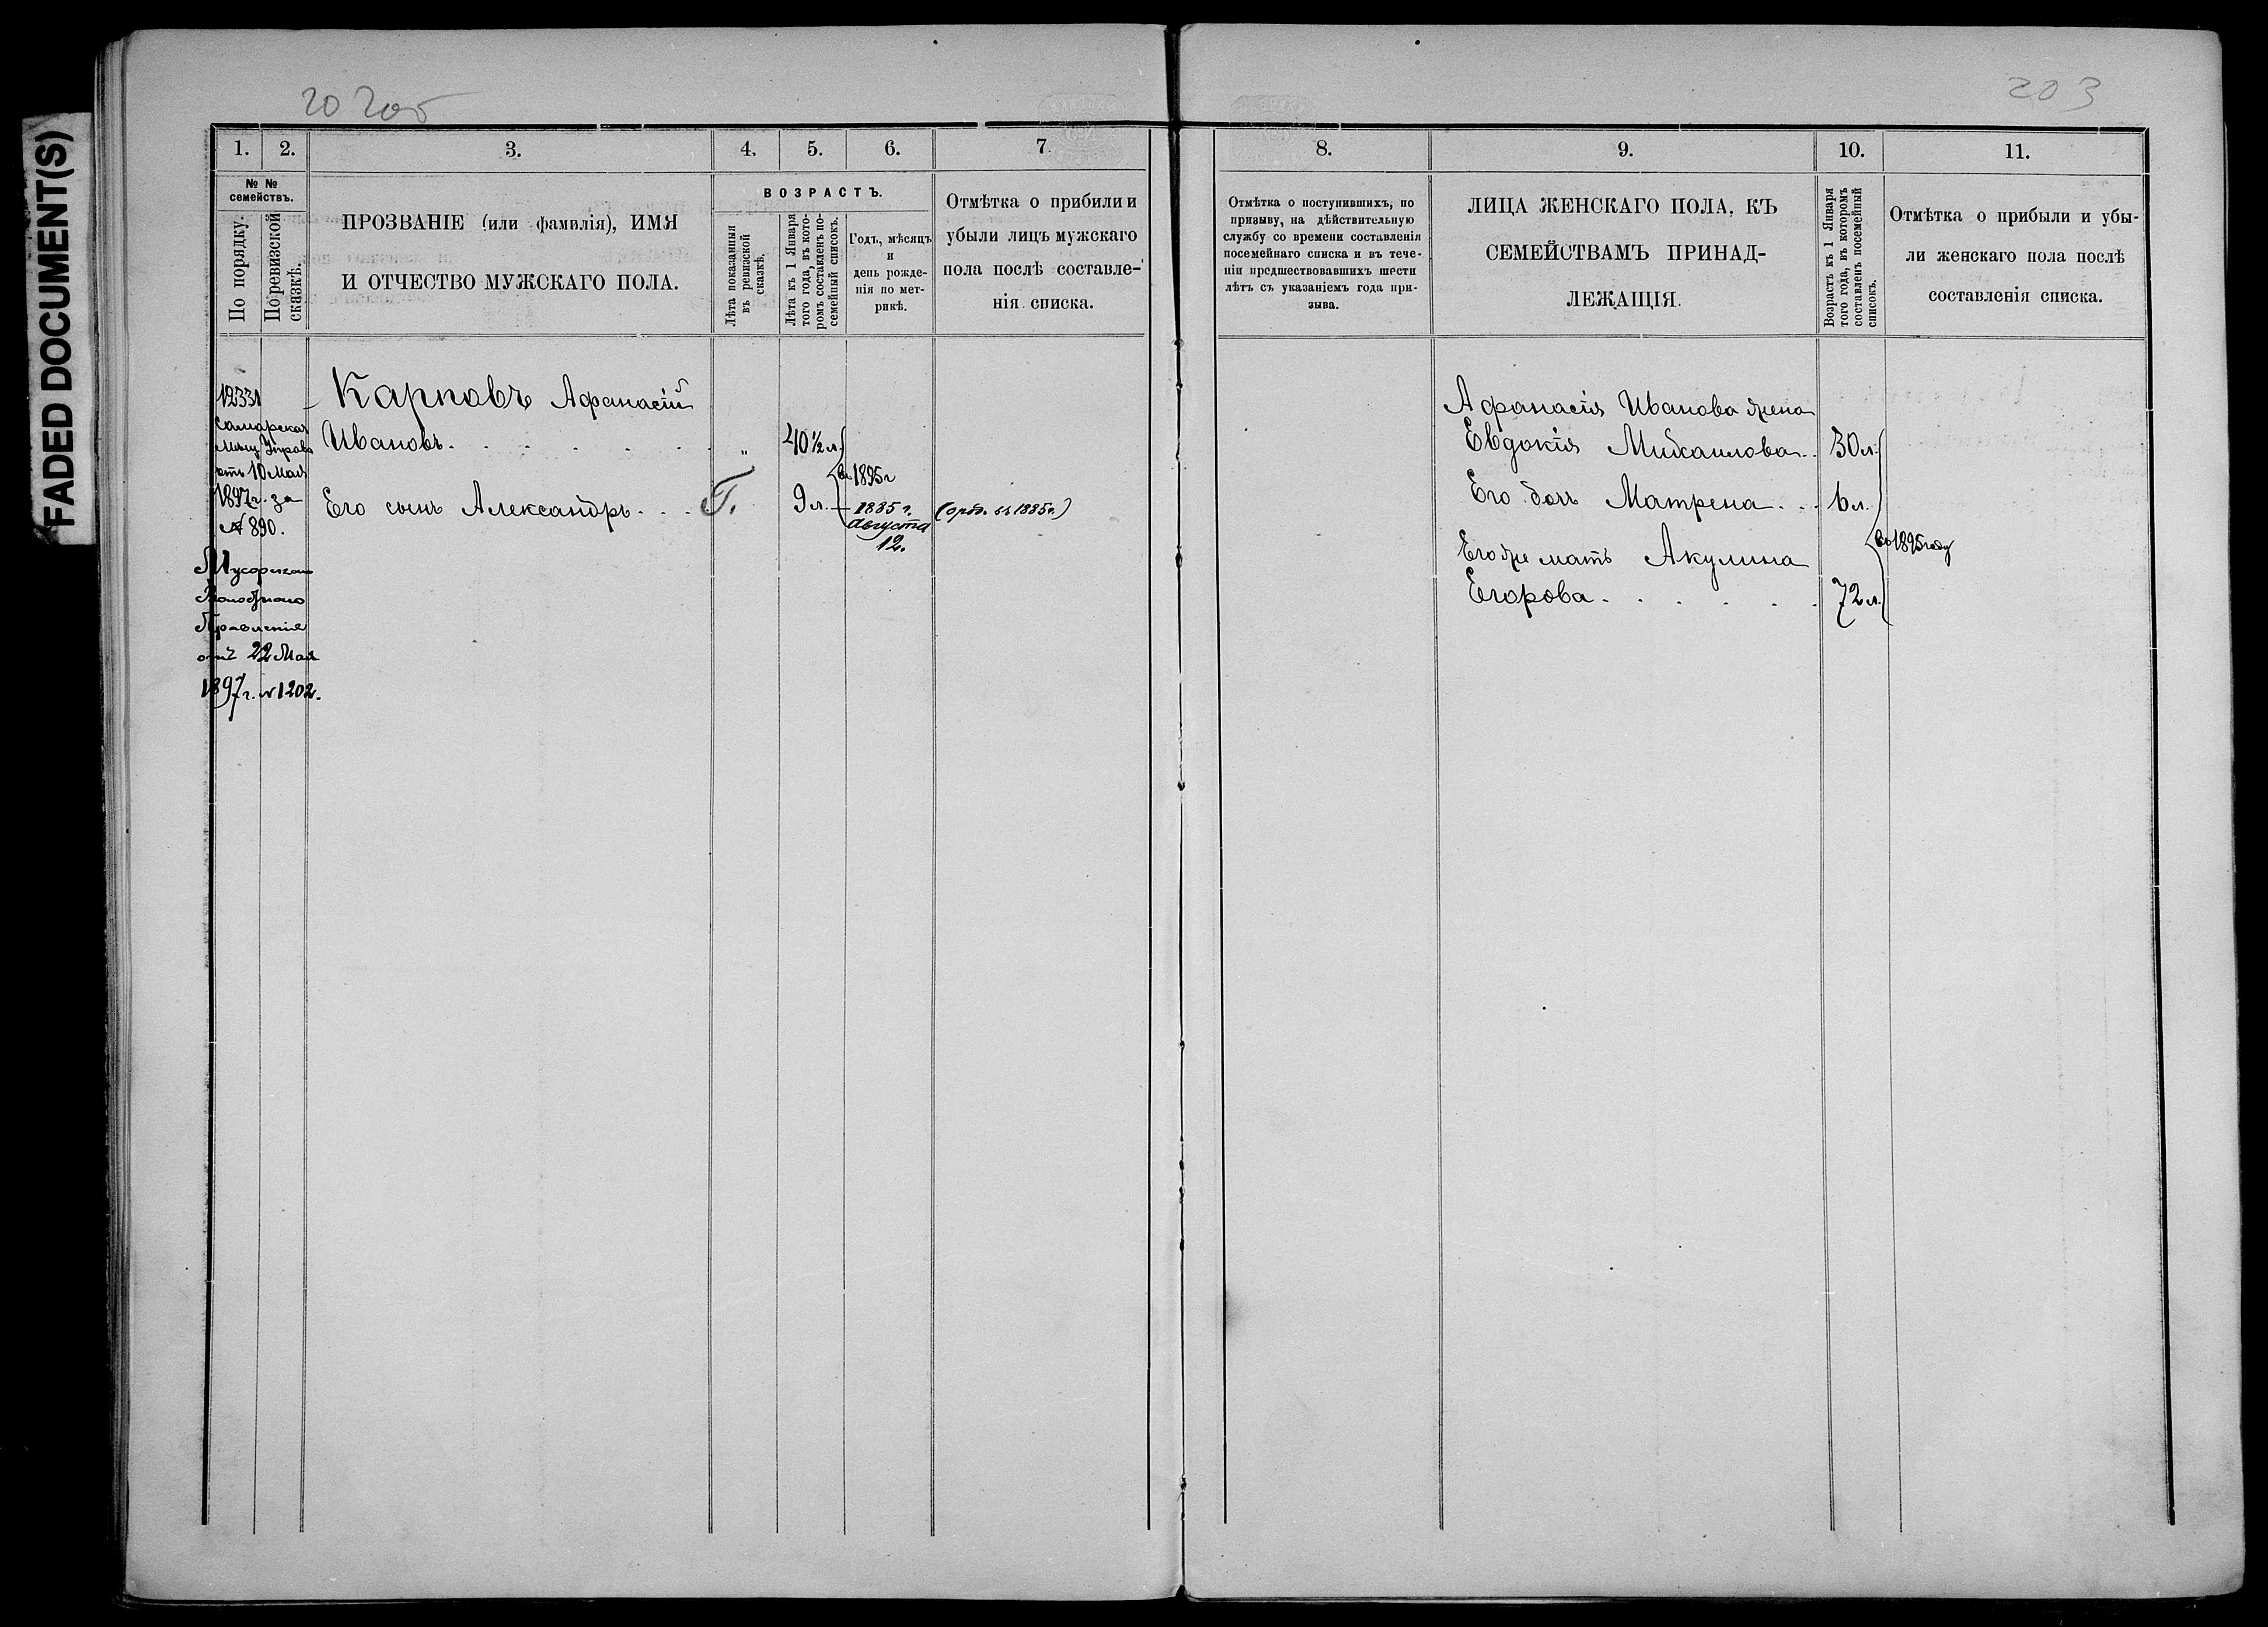 FADED DOCUMENT(S)
203
1. 2. 3. 4. 5. 6. 7
№ №
семействъ.
По порядку.
По ревизской
сказкѣ.
ПРОЗВАНІЕ (или фамилія), ИМЯ
И ОТЧЕСТВО МУЖСКАГО ПОЛА.
ВОЗРАСТЪ.
Лѣта показанныя
въ ревизской
сказкѣ.
Лѣта къ 1 Января
того года, въ кото-
ромъ составленъ по-
семейный списокъ.
Годъ, мѣсяцъ
и
день рожде-
нія по мет-
рикѣ.
Отмѣтка о прибыли и
убыли лицъ мужскаго
пола послѣ составле-
нія списка.
12331
Самарская
Мѣщ Управа
отъ 10 Мая
1897 г. за
№ 890.
Мусорскаго
Волостного
Правленія
отъ 22 Мая
1897 г. № 1202.
Карповъ Афанасій
Ивановъ . . . . . „ 40½ л.
въ 1895 г
Его сынъ Александръ . . . Г. 9 л. 1885 г. (орд. съ 1885 г.)
Августа
12.
8. 9. 10. 11.
Отмѣтка о поступившихъ, по
призыву, на дѣйствительную
службу со времени составленія
посемейнаго списка и въ тече-
ніи предшествовавшихъ шести
лѣтъ съ указаніемъ года при-
зыва.
ЛИЦА ЖЕНСКАГО ПОЛА, КЪ
СЕМЕЙСТВАМЪ ПРИНАД-
ЛЕЖАЩІЯ.
Возрастъ къ 1 Января
того года, въ которомъ
составленъ посемейный
списокъ.
Отмѣтка о прибыли и убы-
ли женскаго пола послѣ
составленія списка.
Афанасія Иванова жена
Евдокія Михаилова . . 30 л.
Его дочь Матрена . . . 6 л.
въ 1895 году
Его же мать Акулина
Егорова . . . . . 72 л.